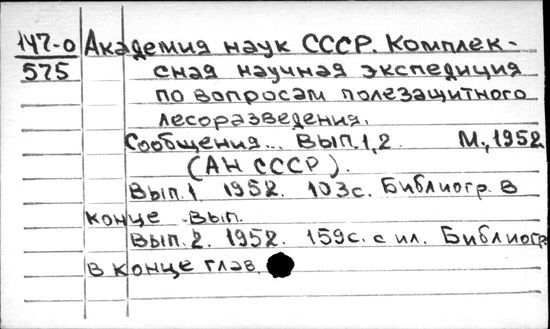 147-0 Академия наук СССР. Комплек-
575 сная научная экспедиция
по вопросам полезащитного
лесоразведения.
Сообщения... Вып.1,2. М., 1952
(АН СССР).
Вып.1. 1952. 103с. Библиогр. в
конце вып.
Вып.2. 1952. 159с. с ил. Библиогр
в конце глав.